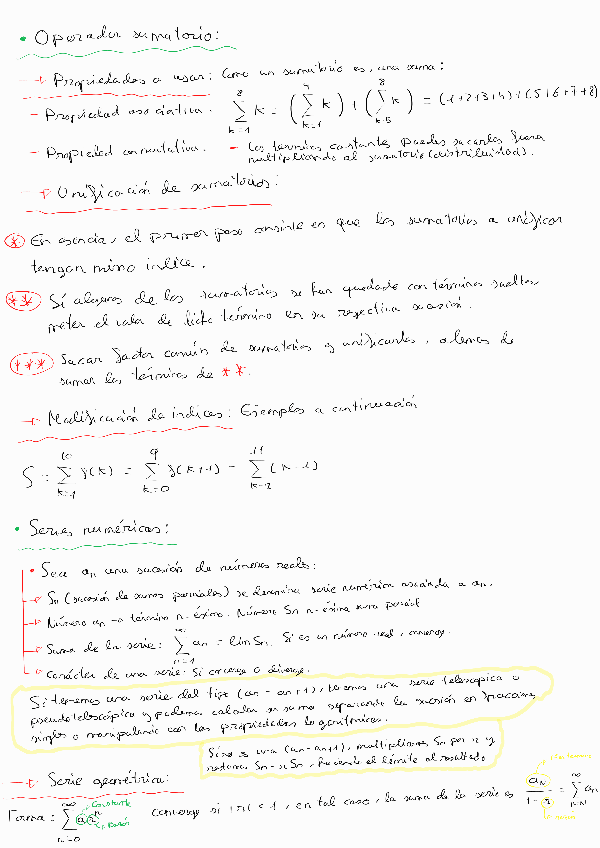 • Operador sumatorio:
→ Propiedades a usar: Como un sumatorio es una suma:
- Propiedad asociativa. \sum_{k=1}^{8} k = (\sum_{k=1}^{4} k) + (\sum_{k=5}^{8} k) = (1+2+3+4)+(5+6+7+8)
- Propiedad conmutativa. - Los términos constantes puedes sacarlos fuera
multiplicando al sumatorio (distributividad).
→ Unificación de sumatorios:
* En esencia, el primer paso consiste en que los sumatorios a unificar
tengan mismo índice.
** Si algunos de los sumatorios se han quedado con términos sueltos
meter el valor de dicho término en su respectiva sucesión.
*** Sacar factor común de sumatorios y unificarlos, además de
sumar los términos de **.
→ Modificación de índices: Ejemplos a continuación
S = \sum_{k=1}^{10} f(k) = \sum_{k=0}^{9} f(k+1) = \sum_{k=2}^{11} (k-1)
• Series numéricas:
• Sea an una sucesión de números reales:
→ Sn (sucesión de sumas parciales) se denomina serie numérica asociada a an.
→ Número an → término n-ésimo. Número Sn n-ésima suma parcial
→ Suma de la serie: \sum_{n=1}^{∞} an = lim Sn. Si es un número real, converge.
→ Carácter de una serie: Si converge o diverge.
Si tenemos una serie del tipo (an - an+1), tenemos una serie telescópica o
pseudotelescópica y podemos calcular su suma separando la sucesión en fracciones
simples o manipulando con las propiedades logarítmicas.
Si no es una (an - an+1), multiplicamos Sn por r y
restamos Sn - r Sn, haciendo el límite al resultado.
→ Serie geométrica:
Forma: \sum_{n=0}^{∞} a r^n Constante Razón Converge si |r| < 1, en tal caso, la suma de la serie es \frac{a_N}{1-r} = \sum_{n=N}^{∞} an